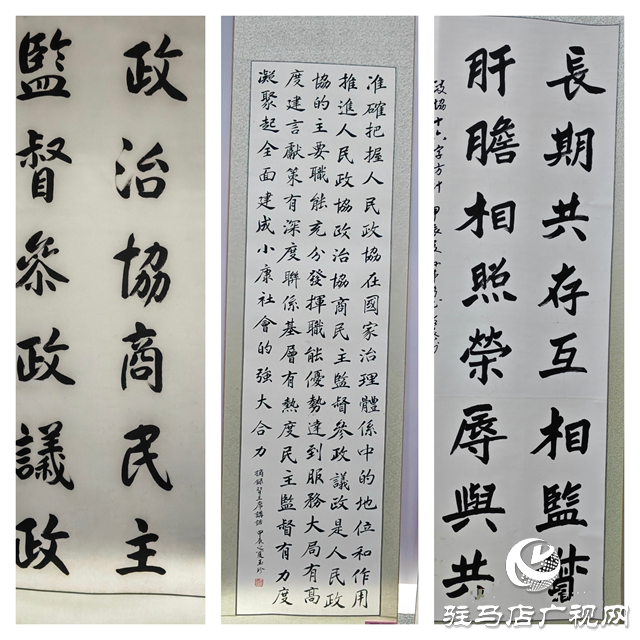 政治協商民主
監督參政議政
准確把握人民政協在國家治理體係中的地位和作用
推進人民政協政治協商民主監督參政議政是人民政
協的主要職能充分發揮職能優勢達到服務大局有高
度建言獻策有深度聯係基層有熱度民主監督有力度
凝聚起全面建成小康社會的強大合力
摘録習主席講話 甲辰之夏玉珍
長期共存互相監督
肝膽相照榮辱與共
政協十六字方針 甲辰
驻马店广视网